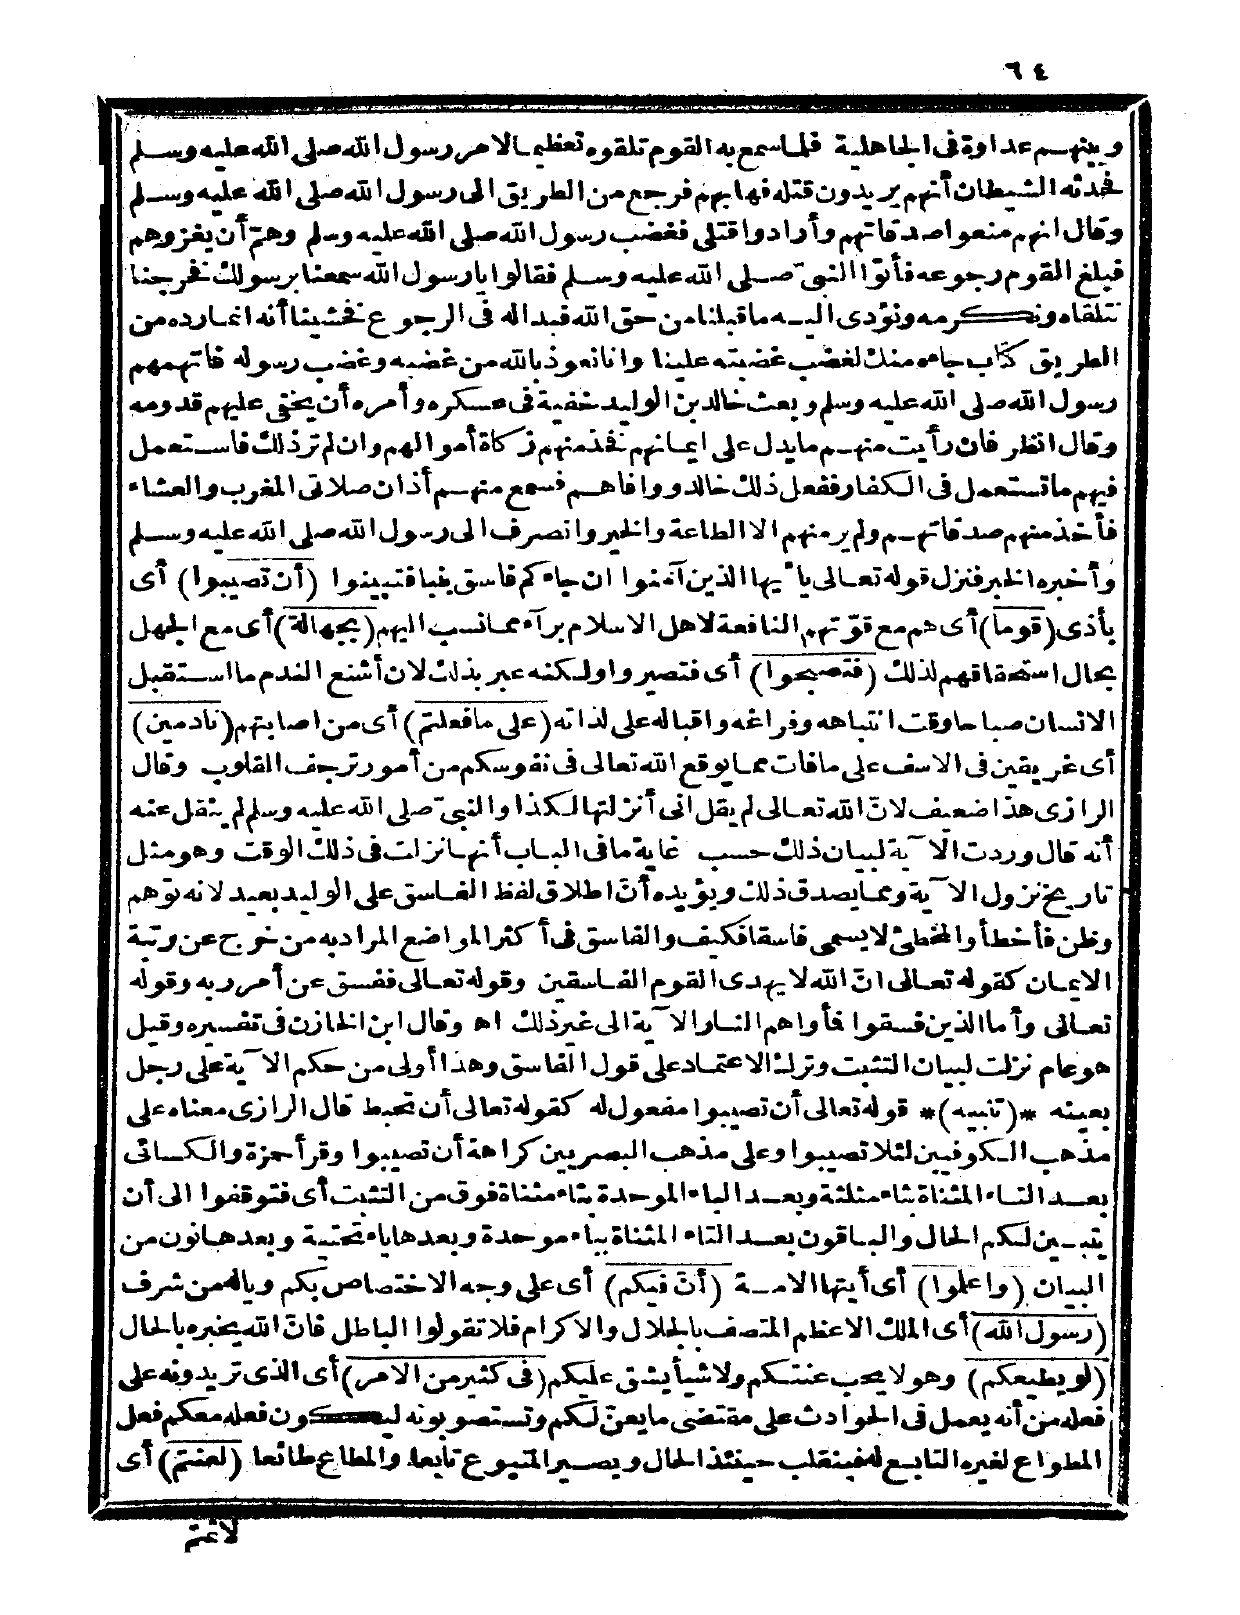 ٦٤
وبينهم عداوة فى الجاهلية فلما سمع به القوم تلقوه تعظيما لامر رسول الله صلى الله عليه وسلم
فحدثه الشيطان أنهم يريدون قتله فهابهم فرجع من الطريق الى رسول الله صلى الله عليه وسلم
وقال انهم منعوا صدقاتهم وأرادوا قتلى فغضب رسول الله صلى الله عليه وسلم وهمّ أن يغزوهم
فبلغ القوم رجوعه فأتوا النبىّ صلى الله عليه وسلم فقالوا يا رسول الله سمعنا برسولك فخرجنا
نتلقاه ونكرمه ونؤدى اليه ما قبلنا من حق الله فبدا له فى الرجوع فخشينا أنه انما رده من
الطريق كتاب جاءه منك لغضب غضبته علينا وانا نعوذ بالله من غضبه وغضب رسوله فاتهمهم
رسول الله صلى الله عليه وسلم وبعث خالد بن الوليد خفية فى عسكره وأمره أن يخفى عليهم قدومه
وقال انظر فان رأيت منهم ما يدل على ايمانهم فخذ منهم زكاة أموالهم وان لم تر ذلك فاستعمل
فيهم ما تستعمل فى الكفار ففعل ذلك خالد ووافاهم فسمع منهم أذان صلاتى المغرب والعشاء
فأخذ منهم صدقاتهم ولم ير منهم الا الطاعة والخير وانصرف الى رسول الله صلى الله عليه وسلم
وأخبره الخبر فنزل قوله تعالى يا أيها الذين آمنوا ان جاءكم فاسق بنبا فتبينوا (أن تصيبوا) أى
بأذى (قوما) أى هم مع قوّتهم النافعة لاهل الاسلام برآء مما نسب اليهم (بجهالة) أى مع الجهل
بحال استحقاقهم لذلك (فتصبحوا) أى فتصيروا ولكنه عبر بذلك لان أشنع الندم ما استقبل
الانسان صباحا وقت انتباهه وفراغه واقباله على لذاته (على ما فعلتم) أى من اصابتهم (نادمين)
أى غريقين فى الاسف على ما فات مما يوقع الله تعالى فى نفوسكم من أمور ترجف القلوب وقال
الرازى هذا ضعيف لانّ الله تعالى لم يقل انى أنزلتها لكذا والنبىّ صلى الله عليه وسلم لم ينقل عنه
أنه قال وردت الآية لبيان ذلك حسب غاية ما فى الباب أنها نزلت فى ذلك الوقت وهو مثل
تاريخ نزول الآية ومما يصدق ذلك ويؤيده أنّ اطلاق لفظ الفاسق على الوليد بعيد لانه توهم
وظن فأخطأ والمخطئ لا يسمى فاسقا فكيف والفاسق فى أكثر المواضع المراد به من خرج عن ربقة
الايمان كقوله تعالى انّ الله لا يهدى القوم الفاسقين وقوله تعالى ففسق عن أمر ربه وقوله
تعالى وأما الذين فسقوا فأواهم النار الآية الى غير ذلك اه وقال ابن الخازن فى تفسيره وقيل
هو عام نزلت لبيان التثبت وترك الاعتماد على قول الفاسق وهذا أولى من حكم الآية على رجل
بعينه *(تنبيه)* قوله تعالى أن تصيبوا مفعول له كقوله تعالى أن تحبط قال الرازى معناه على
مذهب الكوفيين لئلا تصيبوا وعلى مذهب البصريين كراهة أن تصيبوا وقرأ حمزة والكسائى
بعد التاء المثناة بثاء مثلثة وبعد الباء الموحدة بتاء مثناة فوق من التثبت أى فتوقفوا الى أن
يتبين لكم الحال والباقون بعد التاء المثناة بباء موحدة وبعدها ياء تحتية وبعدها نون من
البيان (واعلموا) أى أيتها الامة (أنّ فيكم) أى على وجه الاختصاص بكم وياله من شرف
(رسول الله) أى الملك الاعظم المتصف بالجلال والاكرام فلا تقولوا الباطل فانّ الله يخبره بالحال
(لو يطيعكم) وهو لا يحب عنتكم ولا شيأ يشق عليكم (فى كثير من الامر) أى الذى تريدونه على
فعله من أنه يعمل فى الحوادث على مقتضى ما يعنّ لكم وتستصوبونه ليكون فعله معكم فعل
المطواع لغيره التابع له فينقلب حينئذ الحال ويصير المتبوع تابعا والمطاع طائعا (لعنتم) أى
لاثمتم